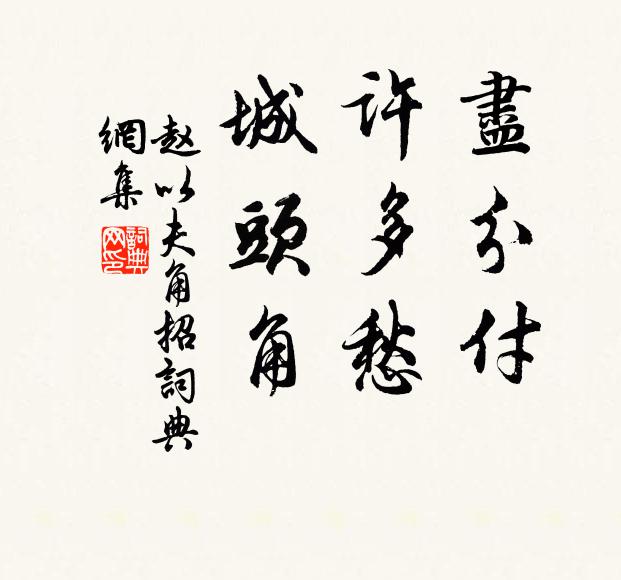 盡分付
許多愁
城頭角
赵以夫角招詞典
網集
詞典
网印